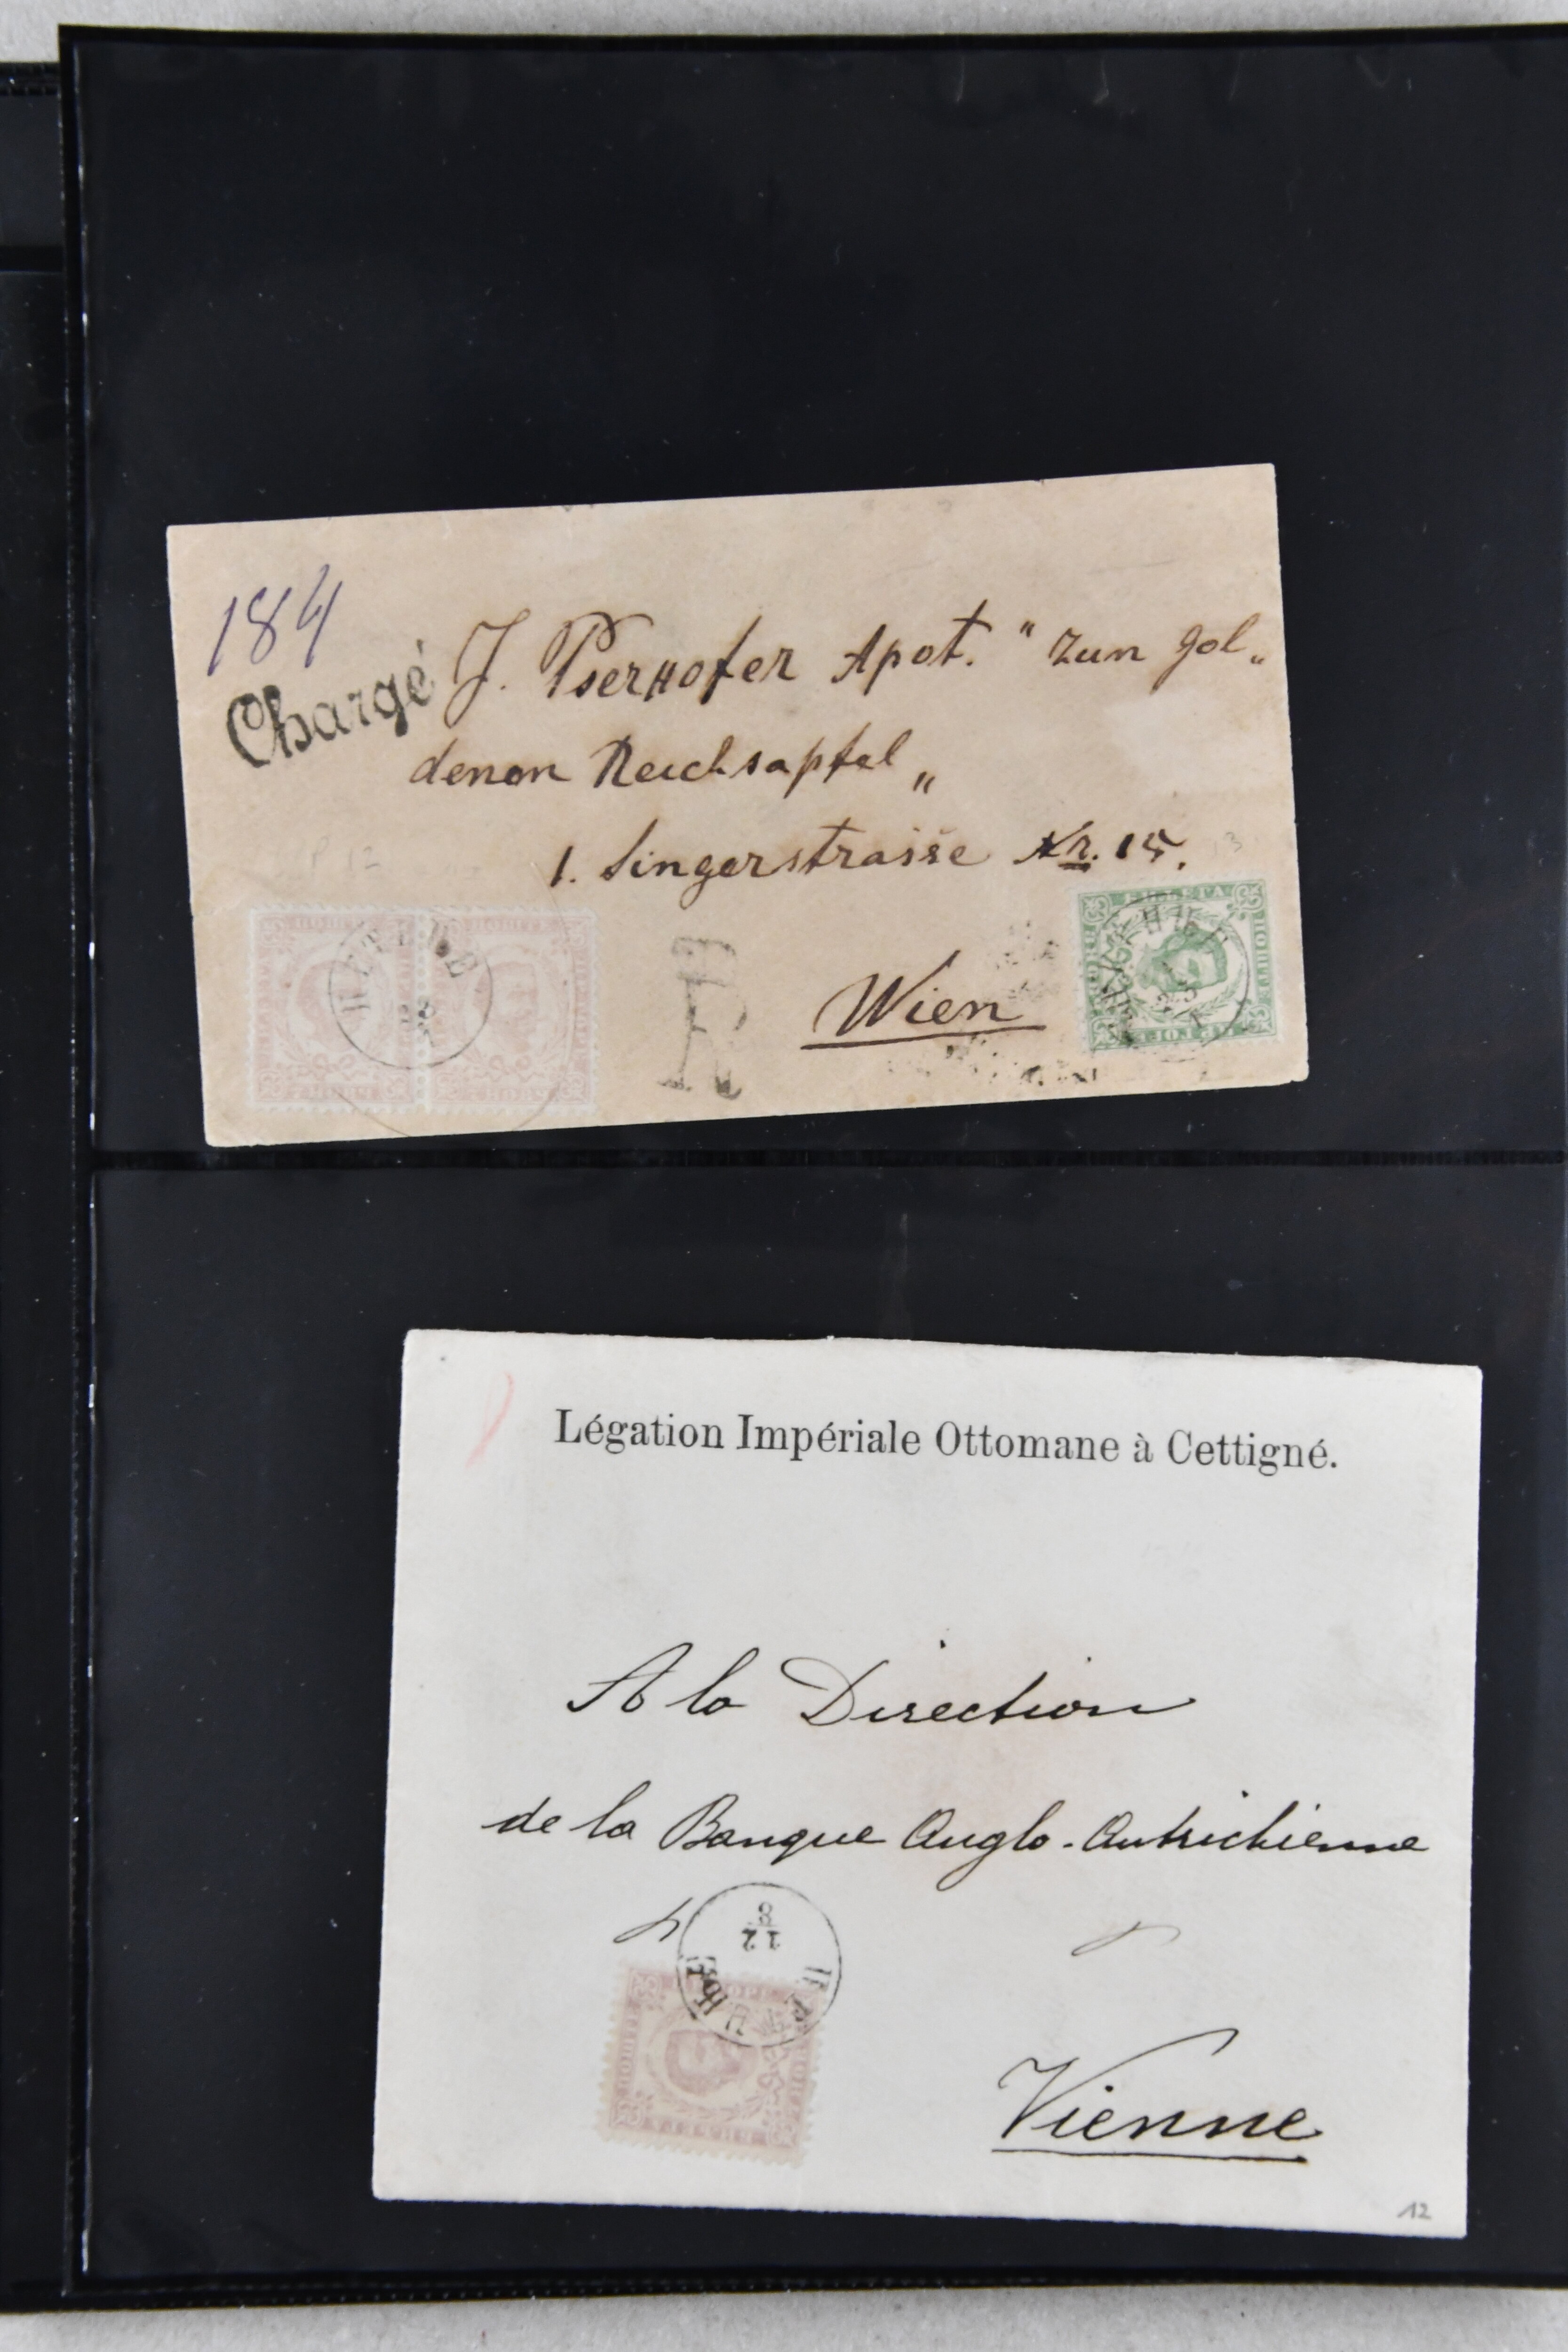 184
Chargé
J. Pserhofer Apot. "zum gol„
denen Reichsapfel„
1. Singerstrasse Nr. 15.
R
Wien
Légation Impériale Ottomane à Cettigné.
A la Direction
de la Banque Anglo-Autrichienne
12
8
Vienne
12